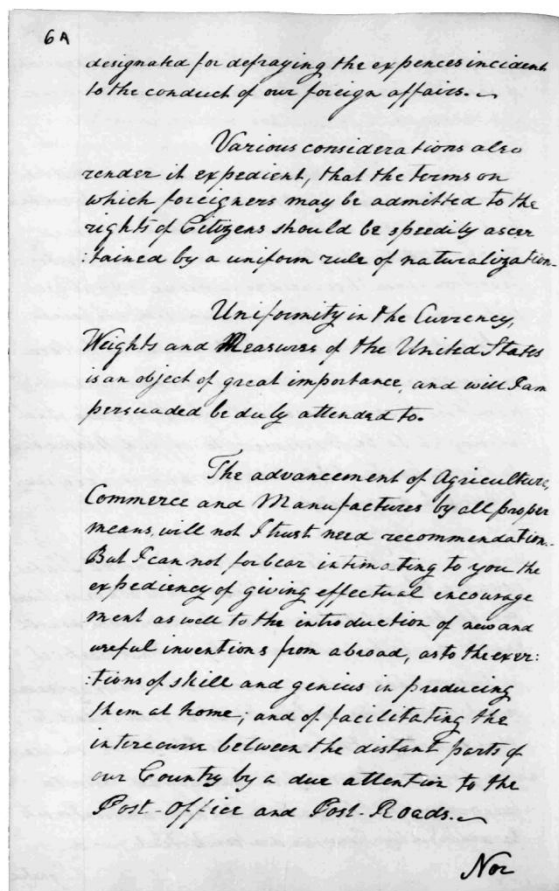 6A
designated for defraying the expences incident
to the conduct of our foreign affairs.
Various considerations also
render it expedient, that the terms on
which foreigners may be admitted to the
rights of Citizens should be speedily ascer
:tained by a uniform rule of naturalization.
Uniformity in the Currency,
Weights and Measures of the United States
is an object of great importance, and will I am
persuaded be duly attended to.
The advancement of Agriculture,
Commerce and Manufactures by all proper
means, will not I trust need recommendation.
But I can not forbear intimating to you the
expediency of giving effectual encourage
ment as well to the introduction of new and
useful inventions from abroad, as to the exer:
:tions of skill and genius in producing
them at home; and of facilitating the
intercourse between the distant parts of
our Country by a due attention to the
Post-Office and Post-Roads.
Nor